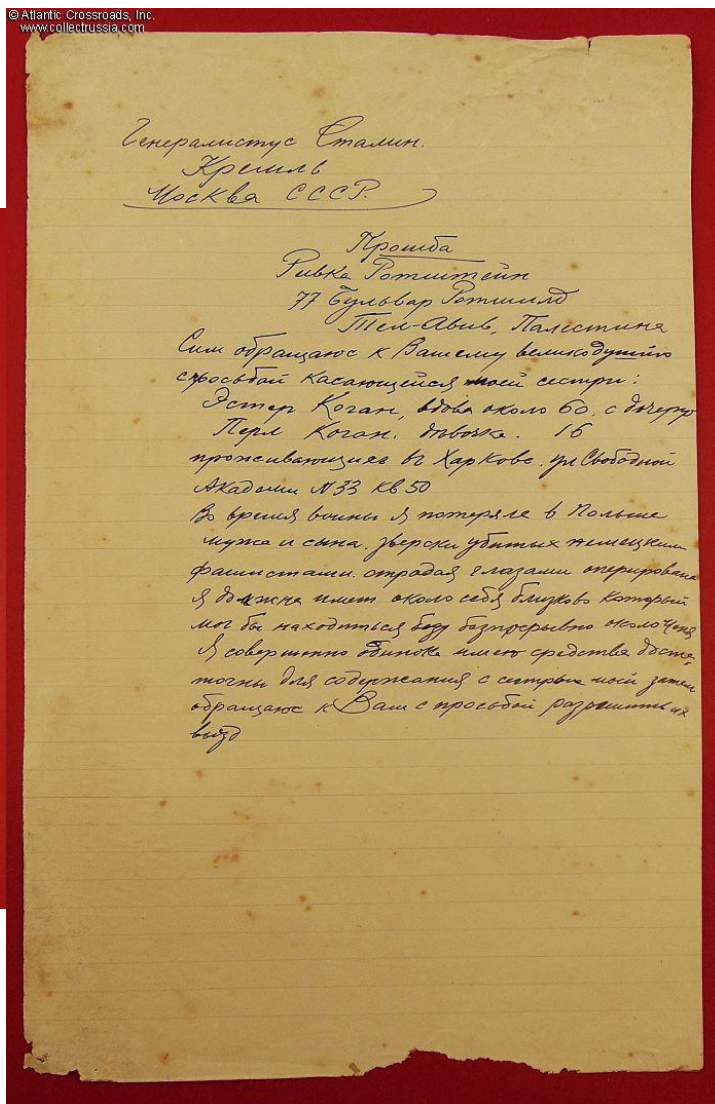 © Atlantic Crossroads, Inc.
www.collectrussia.com
Генералистус Сталин.
Кремль
Москва СССР.
Прошба
Ривка Ротштейн
77 Бульвар Ротшилд
Тел-Авив, Палестина
Сим обращаюс к Вашему великодушию
с просьбой касающейся моей сестры:
Эстер Коган, вдова около 60, с дочерю
Перл Коган. дѣвочка. 16
проживающияс в Харкове. ул Свободной
Академи N 33 кв 50
Во время войны я потеряла в Польше
мужа и сына. зверски убитых немецким
фашистами. страдая глазами оперирована
я должна имет около себя близково который
мог бы находиться безпрерывно около меня
Я совершенно одинока имею средства доста-
точны для содержания сестры моей затем
обращаюс к Вам с просьбой разрешить их
выезд